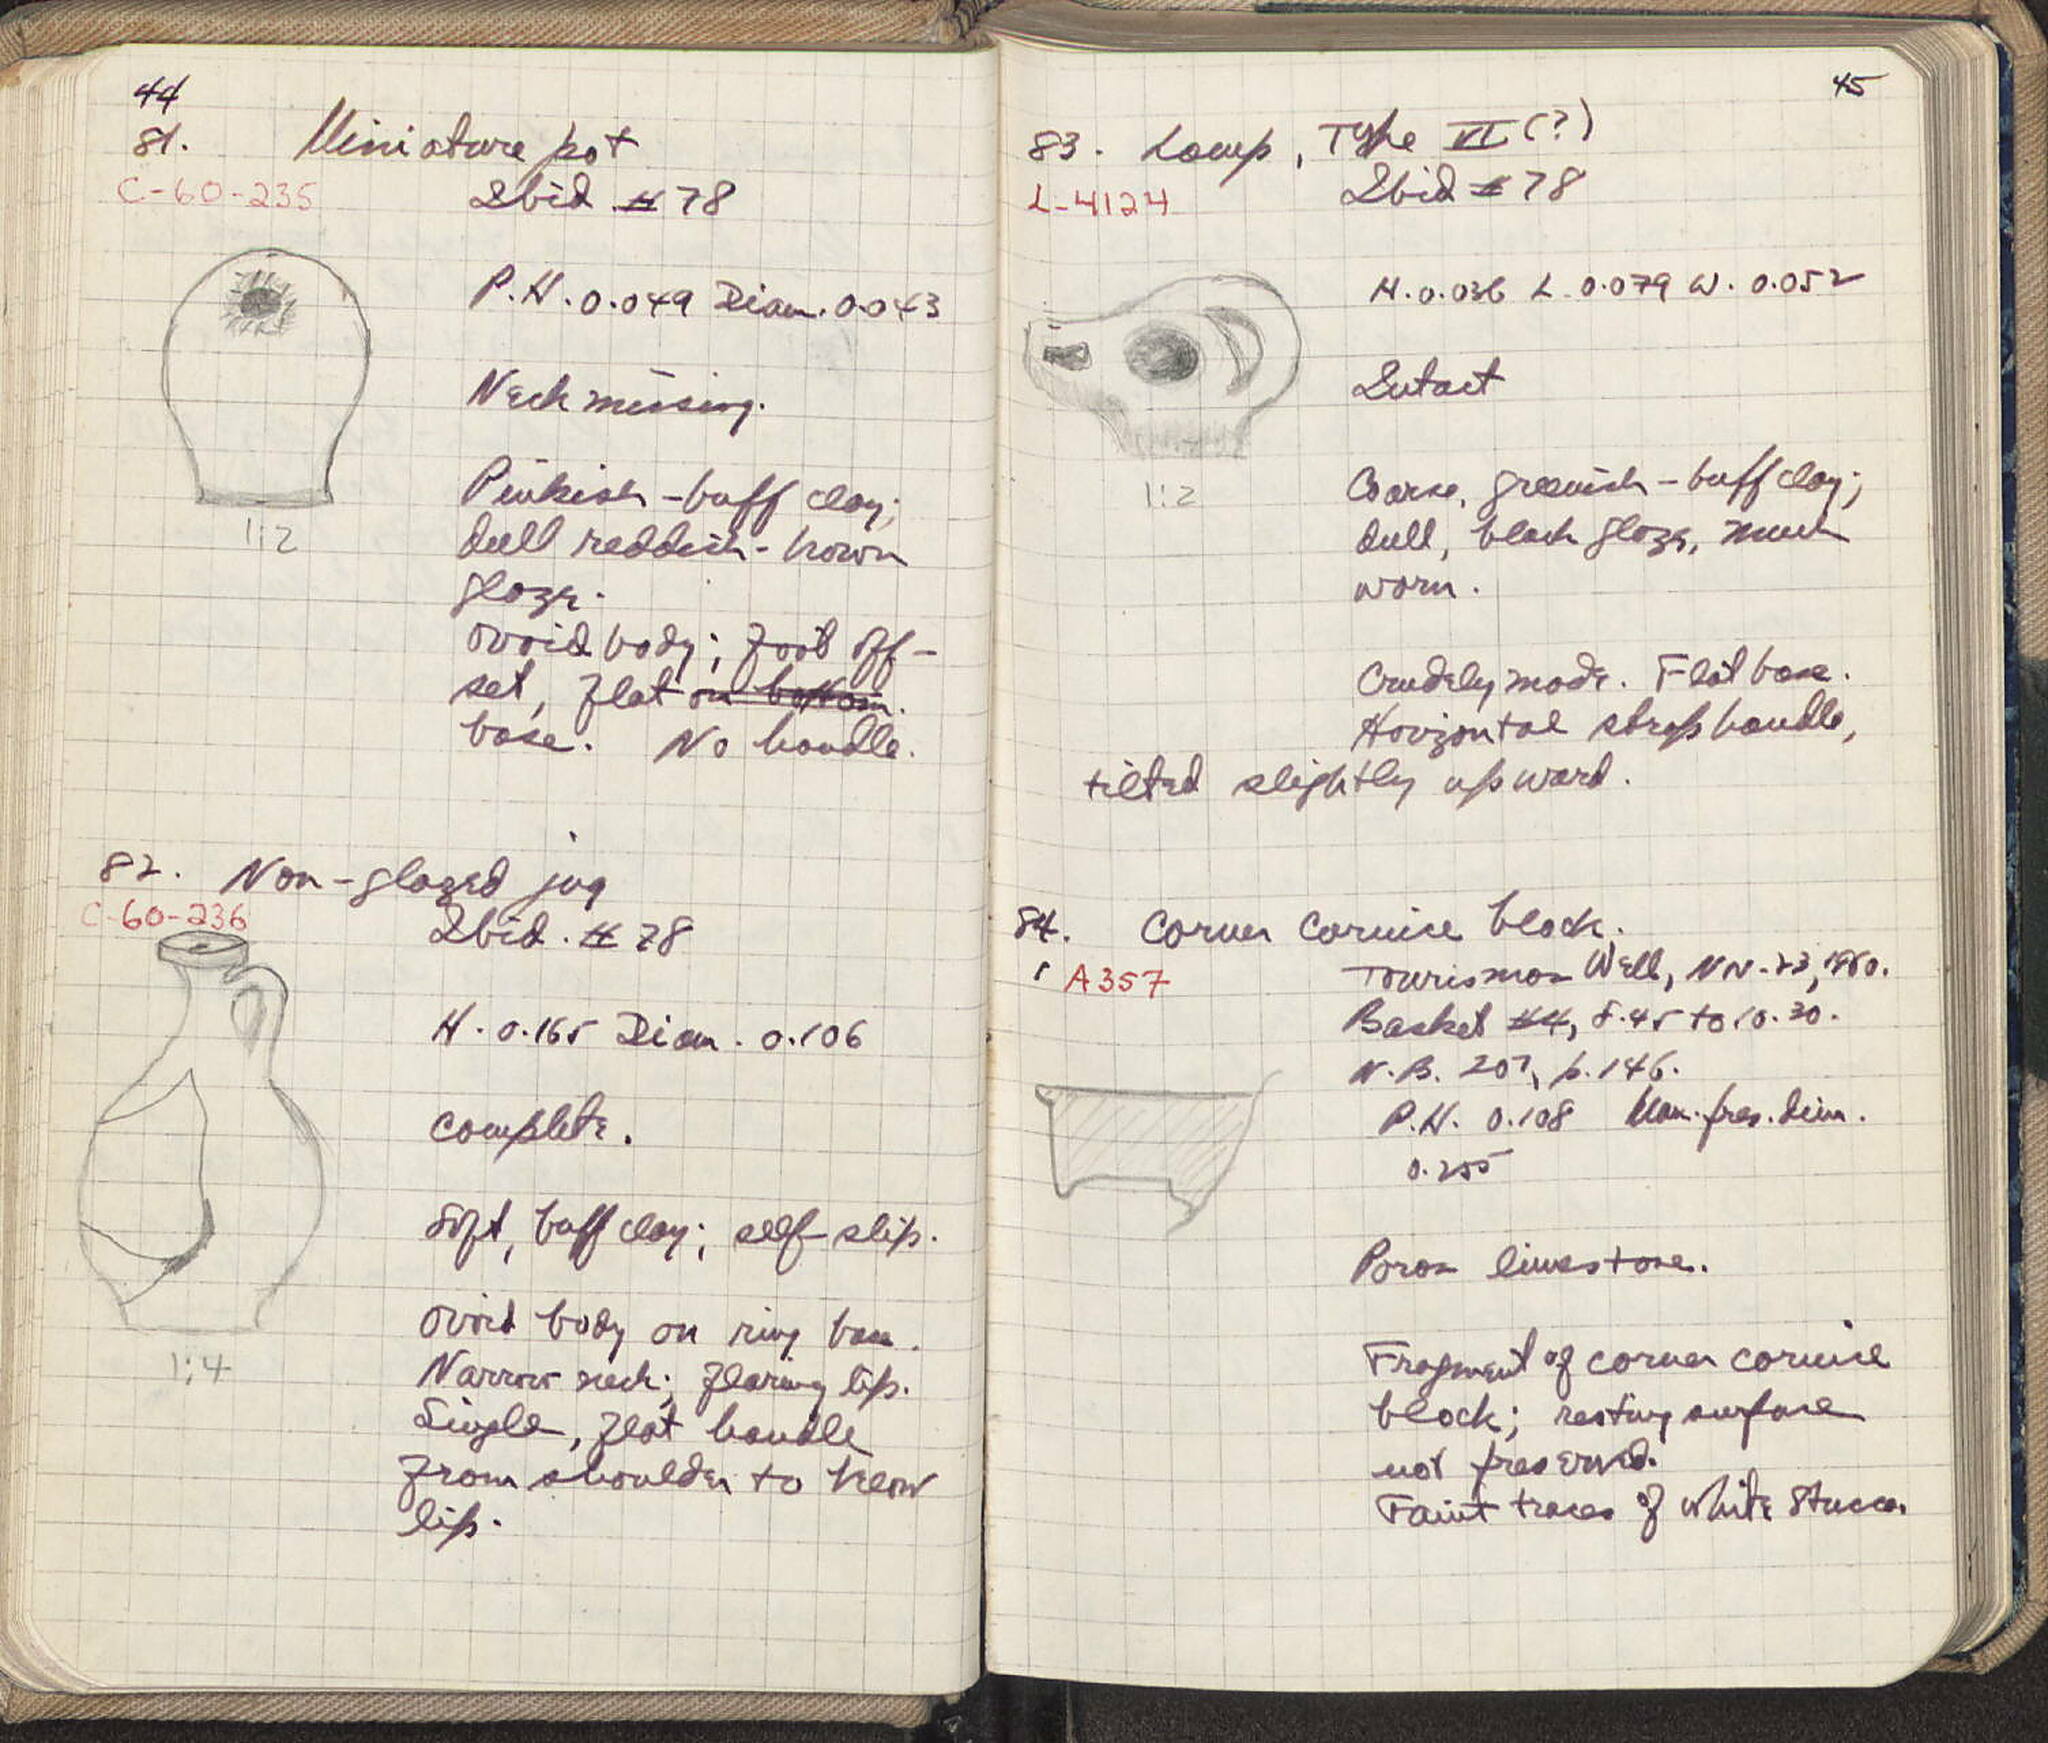 44
81. Miniature pot
C-60-235 Ibid. #78
P.H. 0.049 Diam. 0.043
Neck missing.
Pinkish-buff clay;
dull reddish-brown
glaze.
Ovoid body; foot off-
set, flat on bottom.
base. No handle.
1:2
82. Non-glazed jug
C-60-236 Ibid. #78
H. 0.165 Diam. 0.106
Complete.
Soft, buff clay; self-slip.
Ovoid body on ring base.
Narrow neck; flaring lip.
Single, flat handle
from shoulder to below
lip.
1:4
45
83. Lamp, Type VI (?)
L-4124 Ibid #78
H. 0.036 L. 0.079 W. 0.052
Intact
Coarse, greenish-buff clay;
dull, black glaze, much
worn.
1:2
Crudely made. Flat base.
Horizontal strap handle,
tilted slightly upward.
84. Corner cornice block.
A357 Tourismos Well, NN-23, 1960.
Basket #4, 8.45 to 10.30.
N.B. 207, p. 146.
P.H. 0.108 Max. pres. dim.
0.255
Poros limestone.
Fragment of corner cornice
block; resting surface
not preserved.
Faint traces of white stucco.